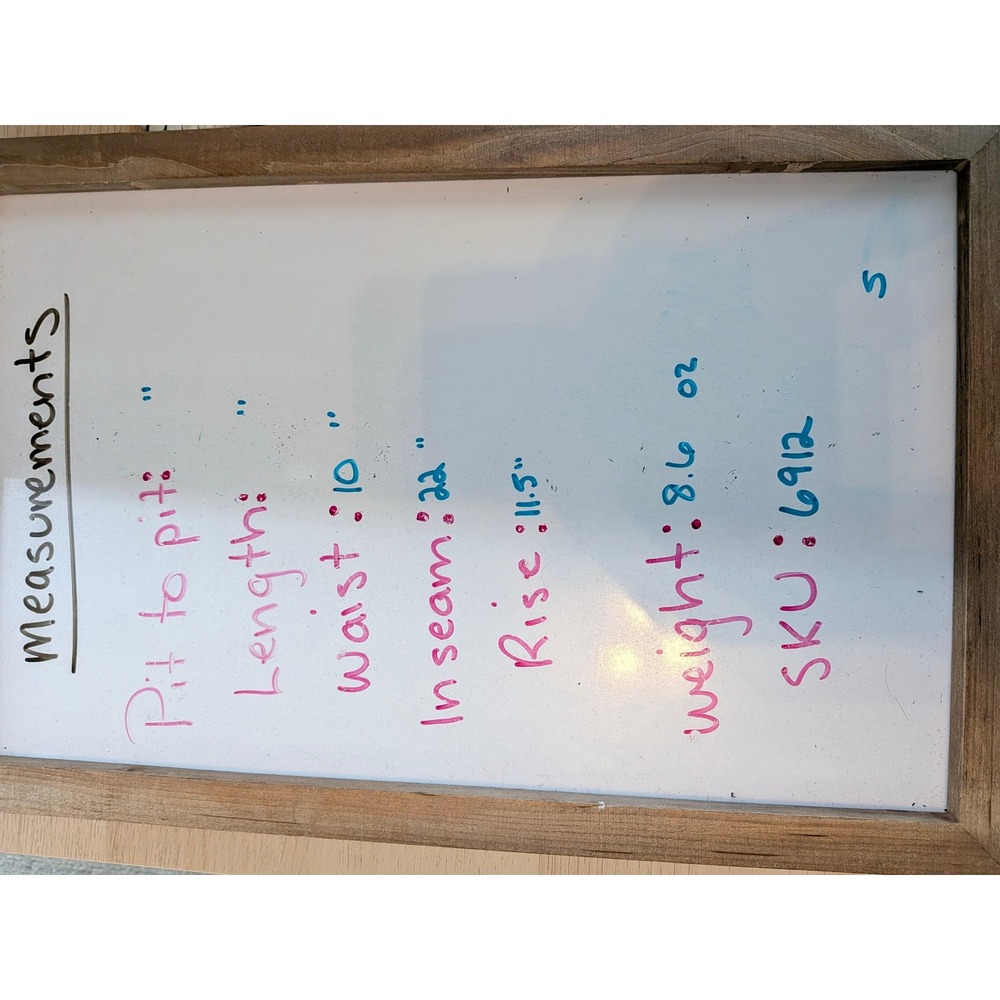 measurements
Pit to pit: "
Length: "
Waist: 10 "
Inseam: 22 "
Rise: 11.5"
weight: 8.6 oz
SKU: 6912
5